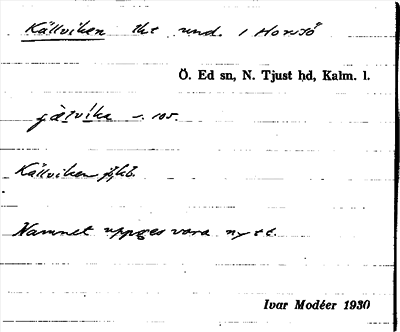 Källviken lht und. 1 Horsö
Ö. Ed sn, N. Tjust hd, Kalm. l.
105.
Källviken jfkb.
Namnet uppges vara nytt
Ivar Modéer 1930